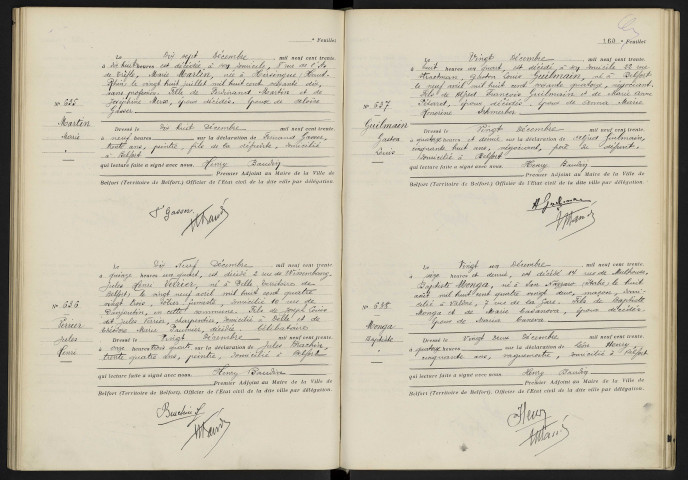 Feuillet
Le Dix sept Décembre mil neuf cent trente,
heures est décédée à son domicile, 8 rue de
Marie Martin, née à Hirsingue (Haut-
Rhin) le vingt huit juillet mil huit cent soixante dix
sans profession. Fille de Ferdinand Martin et de
Joséphine époux décédés. Epouse de
Gasser
N° 635
Martin
Marie
Dressé le Dix huit Décembre mil neuf cent trente,
à neuf heures sur la déclaration de Fernand Gasser,
trente ans, peintre, fils de la défunte, domicilié
à Belfort
qui lecture faite a signé avec nous. Henry Baudry
Premier Adjoint au Maire de la Ville de
Belfort (Territoire de Belfort), Officier de l'Etat civil de la dite ville par délégation.
F. Gasser
Le Dix Neuf Décembre mil neuf cent trente
à quinze heures un quart, est décédé 2 rue de
Jules Henri Verrier, né à Delle Territoire de
Belfort, le vingt neuf avril mil huit cent quatre
vingt trois, domicilié 10 rue de
Danjoutin en cette commune. Fils de Joseph Louis
et Jules Verrier, charpentier, domicilié à Delle et de
Marie décédée. Célibataire
N° 636
Verrier
Jules
Henri
Dressé le Vingt Décembre mil neuf cent trente,
à onze heures trois quarts sur la déclaration de Jules
trente quatre ans, peintre, domicilié à Belfort
qui lecture faite a signé avec nous. Henry Baudry
Premier Adjoint au Maire de la Ville de
Belfort (Territoire de Belfort), Officier de l'Etat civil de la dite ville par délégation.
160 Feuillet
Le Vingt Décembre mil neuf cent trente,
à huit heures un quart, est décédé, à son domicile 22 rue
Strohman, Gaston Louis Guilmain, né à Belfort
le neuf avril mil huit cent soixante quatorze, négociant,
Fils de Alfred François Guilmain et de Marie Anne
époux décédés. Epoux de Anna Marie
Schmerber
N° 637
Guilmain
Gaston
Louis
Dressé le Vingt Décembre mil neuf cent trente,
à quatorze heures et demie sur la déclaration de Alfred Guilmain,
cinquante huit ans, négociant, frère du défunt,
domicilié à Belfort
qui lecture faite a signé avec nous. Henry Baudry
Premier Adjoint au Maire de la Ville de
Belfort (Territoire de Belfort), Officier de l'Etat civil de la dite ville par délégation.
A. Guilmain
Le Vingt un Décembre mil neuf cent trente,
à seize heures et demie, est décédé 14 rue de Mulhouse,
Baptiste Monga, né à San Nazaro (Italie) le huit
août mil huit cent quatre vingt deux, maçon, domi-
cilié à Valdoie, 7 rue de la Gare. Fils de Baptiste
Monga et de Marie Casanova, époux décédés.
Epoux de Maria
N° 638
Monga
Baptiste
Dressé le Vingt deux Décembre mil neuf cent trente,
à quatorze heures sur la déclaration de Léon Henry
cinquante ans, domicilié à Belfort
qui lecture faite a signé avec nous. Henry Baudry
Premier Adjoint au Maire de la Ville de
Belfort (Territoire de Belfort), Officier de l'Etat civil de la dite ville par délégation.
Henry